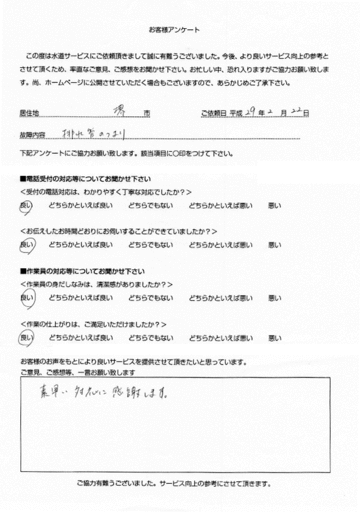 お客様アンケート
この度は水道サービスにご依頼頂きまして誠に有難うございました。今後、より良いサービス向上の参考と
させて頂くため、率直なご意見、ご感想をお聞かせ下さい。お忙しい中、恐れ入りますがご協力お願い致しま
す。尚、ホームページに公開させていただく場合もございますので、あらかじめご了承下さい。
居住地 堺 市 ご依頼日 平成 29 年 2 月 22 日
故障内容 排水管のつまり
下記アンケートにご協力お願い致します。該当項目に〇印をつけて下さい。
■電話受付の対応等についてお聞かせ下さい
<受付の電話対応は、わかりやすく丁寧な対応でしたか？>
良い どちらかといえば良い どちらでもない どちらかといえば悪い 悪い
<お伝えしたお時間どおりにお伺いすることができていましたか？>
良い どちらかといえば良い どちらでもない どちらかといえば悪い 悪い
■作業員の対応等についてお聞かせ下さい
<作業員の身だしなみは、清潔感がありましたか？>
良い どちらかといえば良い どちらでもない どちらかといえば悪い 悪い
<作業の仕上がりは、ご満足いただけましたか？>
良い どちらかといえば良い どちらでもない どちらかといえば悪い 悪い
お客様のお声をもとにより良いサービスを提供させて頂きたいと思っています。
ご意見、ご感想等、一言お願い致します
素早い対応に感謝します。
ご協力有難うございました。サービス向上の参考にさせて頂きます。